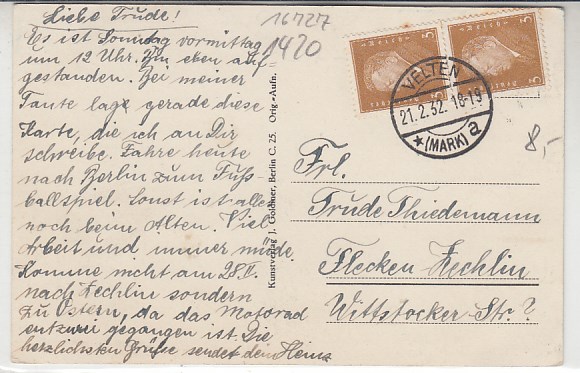 Liebe Trude!
Es ist Sonntag vormittag
um 12 Uhr. Bin eben auf-
gestanden. Bei meiner
Tante lag gerade diese
Karte, die ich an Dir
schreibe. Fahre heute
nach Berlin zum Fuß-
ballspiel. Sonst ist alles
noch beim Alten. Viel
Arbeit und immer müde
Komme nicht am 28.II.
nach Zechlin sondern
zu Ostern, da das Motorad
entzwei gegangen ist. Die
herzlichsten Grüße sendet dein Heinz
16727
1420
Kunstverlag J. Goldiner, Berlin C. 25. Orig.-Aufn.
5
5
VELTEN
21.2.32.18-19
*(MARK) a
8,-
Frl.
Trude Thiedemann
Flecken Zechlin
Wittstocker Str.?